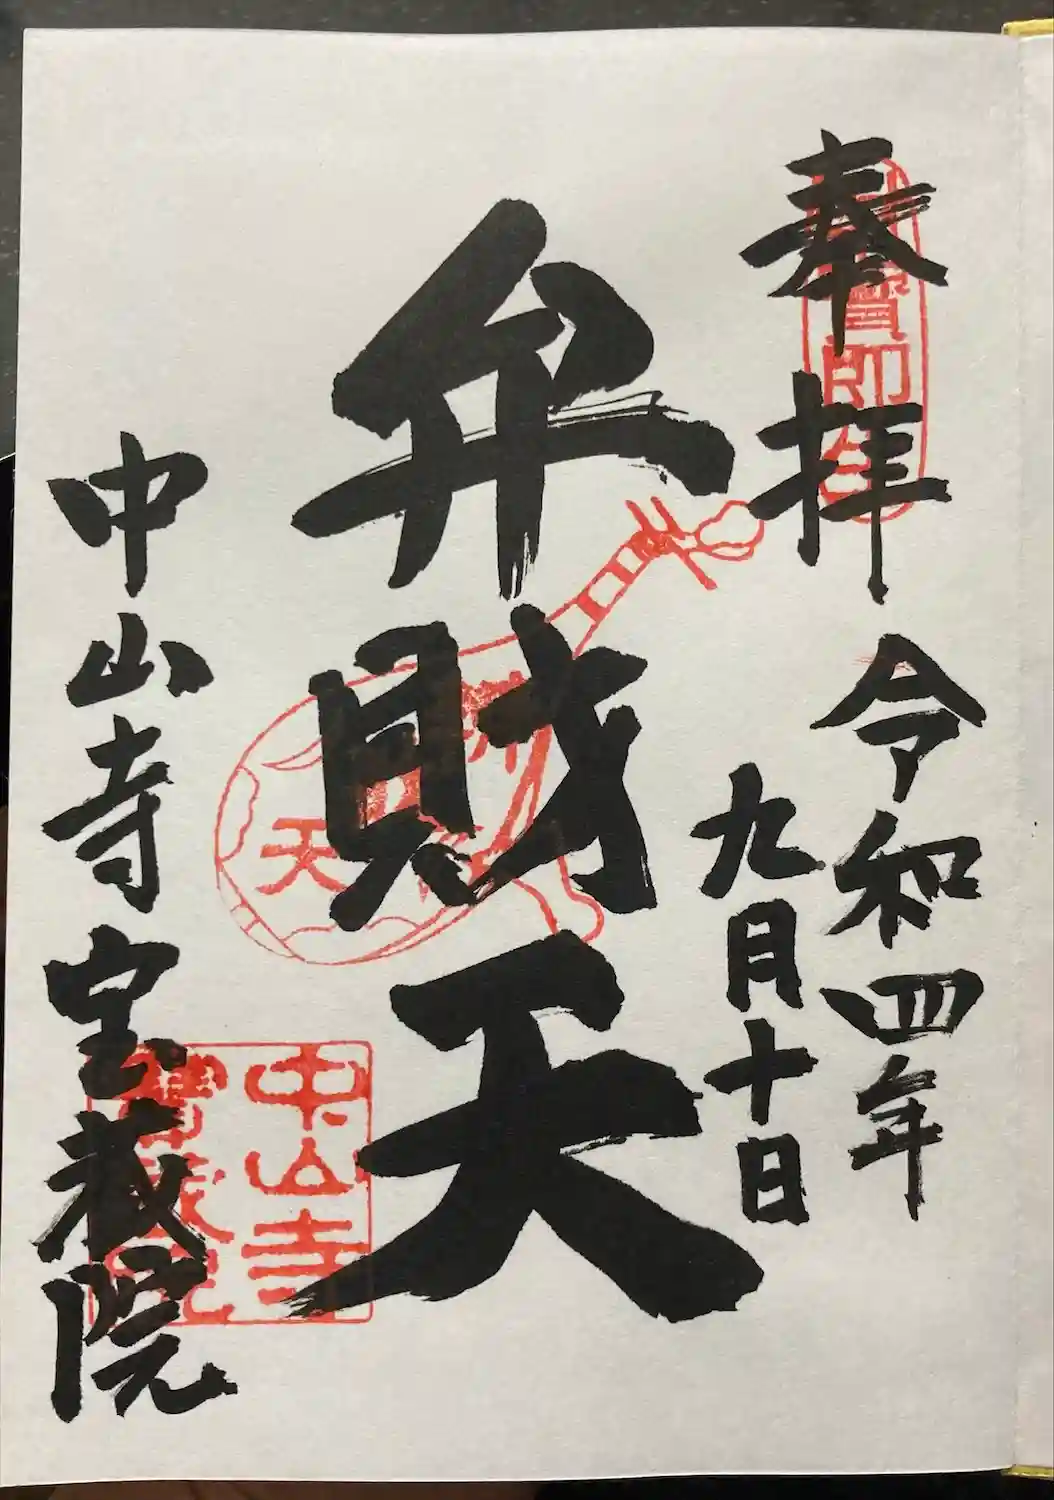 奉拝
令和四年
九月十日
弁財天
天
中山寺宝蔵院
中山寺